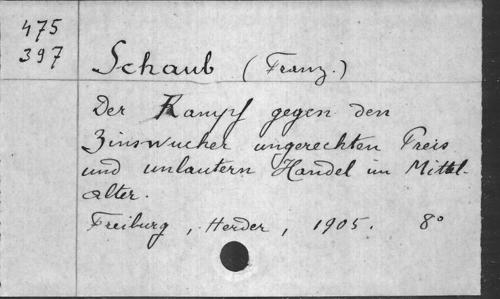 475
397
Schaub (Franz.)
Der Kampf gegen den
Zinswucher ungerechten Preis
und unlautern Handel im Mittel-
alter.
Freiburg, Herder, 1905. 8°